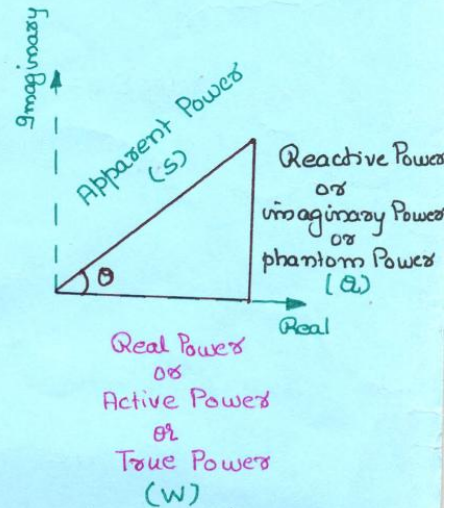 Imaginary
Apparent Power
(S)
Reactive Power
or
imaginary Power
or
phantom Power
(Q)
θ
Real
Real Power
or
Active Power
or
True Power
(W)